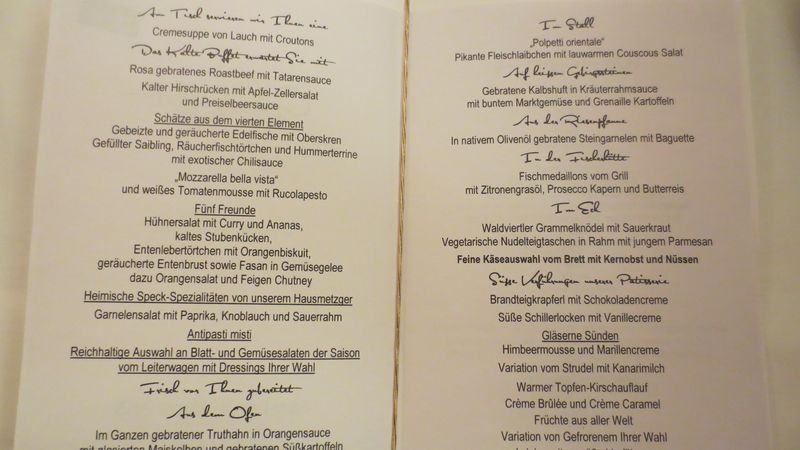 Am Tisch servieren wir Ihnen eine
Cremesuppe von Lauch mit Croutons
Das Kalte Buffet erwartet Sie mit
Rosa gebratenes Roastbeef mit Tatarensauce
Kalter Hirschrücken mit Apfel-Zellersalat
und Preiselbeersauce
Schätze aus dem vierten Element
Gebeizte und geräucherte Edelfische mit Oberskren
Gefüllter Saibling, Räucherfischtörtchen und Hummerterrine
mit exotischer Chilisauce
„Mozzarella bella vista“
und weißes Tomatenmousse mit Rucolapesto
Fünf Freunde
Hühnersalat mit Curry und Ananas,
kaltes Stubenkücken,
Entenlebertörtchen mit Orangenbiskuit,
geräucherte Entenbrust sowie Fasan in Gemüsegelee
dazu Orangensalat und Feigen Chutney
Heimische Speck-Spezialitäten von unserem Hausmetzger
Garnelensalat mit Paprika, Knoblauch und Sauerrahm
Antipasti misti
Reichhaltige Auswahl an Blatt- und Gemüsesalaten der Saison
vom Leiterwagen mit Dressings Ihrer Wahl
Frisch vor Ihnen zubereitet
Aus dem Ofen
Im Ganzen gebratener Truthahn in Orangensauce
mit glasierten Maiskolben und gebratenen Süßkartoffeln
Im Stall
„Polpetti orientale“
Pikante Fleischlaibchen mit lauwarmen Couscous Salat
Auf heissen Gebirgssteinen
Gebratene Kalbshuft in Kräuterrahmsauce
mit buntem Marktgemüse und Grenaille Kartoffeln
Aus der Riesenpfanne
In nativem Olivenöl gebratene Steingarnelen mit Baguette
In der Fischerhütte
Fischmedaillons vom Grill
mit Zitronengrasöl, Prosecco Kapern und Butterreis
Im Eck
Waldviertler Grammelknödel mit Sauerkraut
Vegetarische Nudelteigtaschen in Rahm mit jungem Parmesan
Feine Käseauswahl vom Brett mit Kernobst und Nüssen
Süsse Verführungen unserer Patisserie
Brandteigkrapferl mit Schokoladencreme
Süße Schillerlocken mit Vanillecreme
Gläserne Sünden
Himbeermousse und Marillencreme
Variation vom Strudel mit Kanarimilch
Warmer Topfen-Kirschauflauf
Crème Brûlée und Crème Caramel
Früchte aus aller Welt
Variation von Gefrorenem Ihrer Wahl